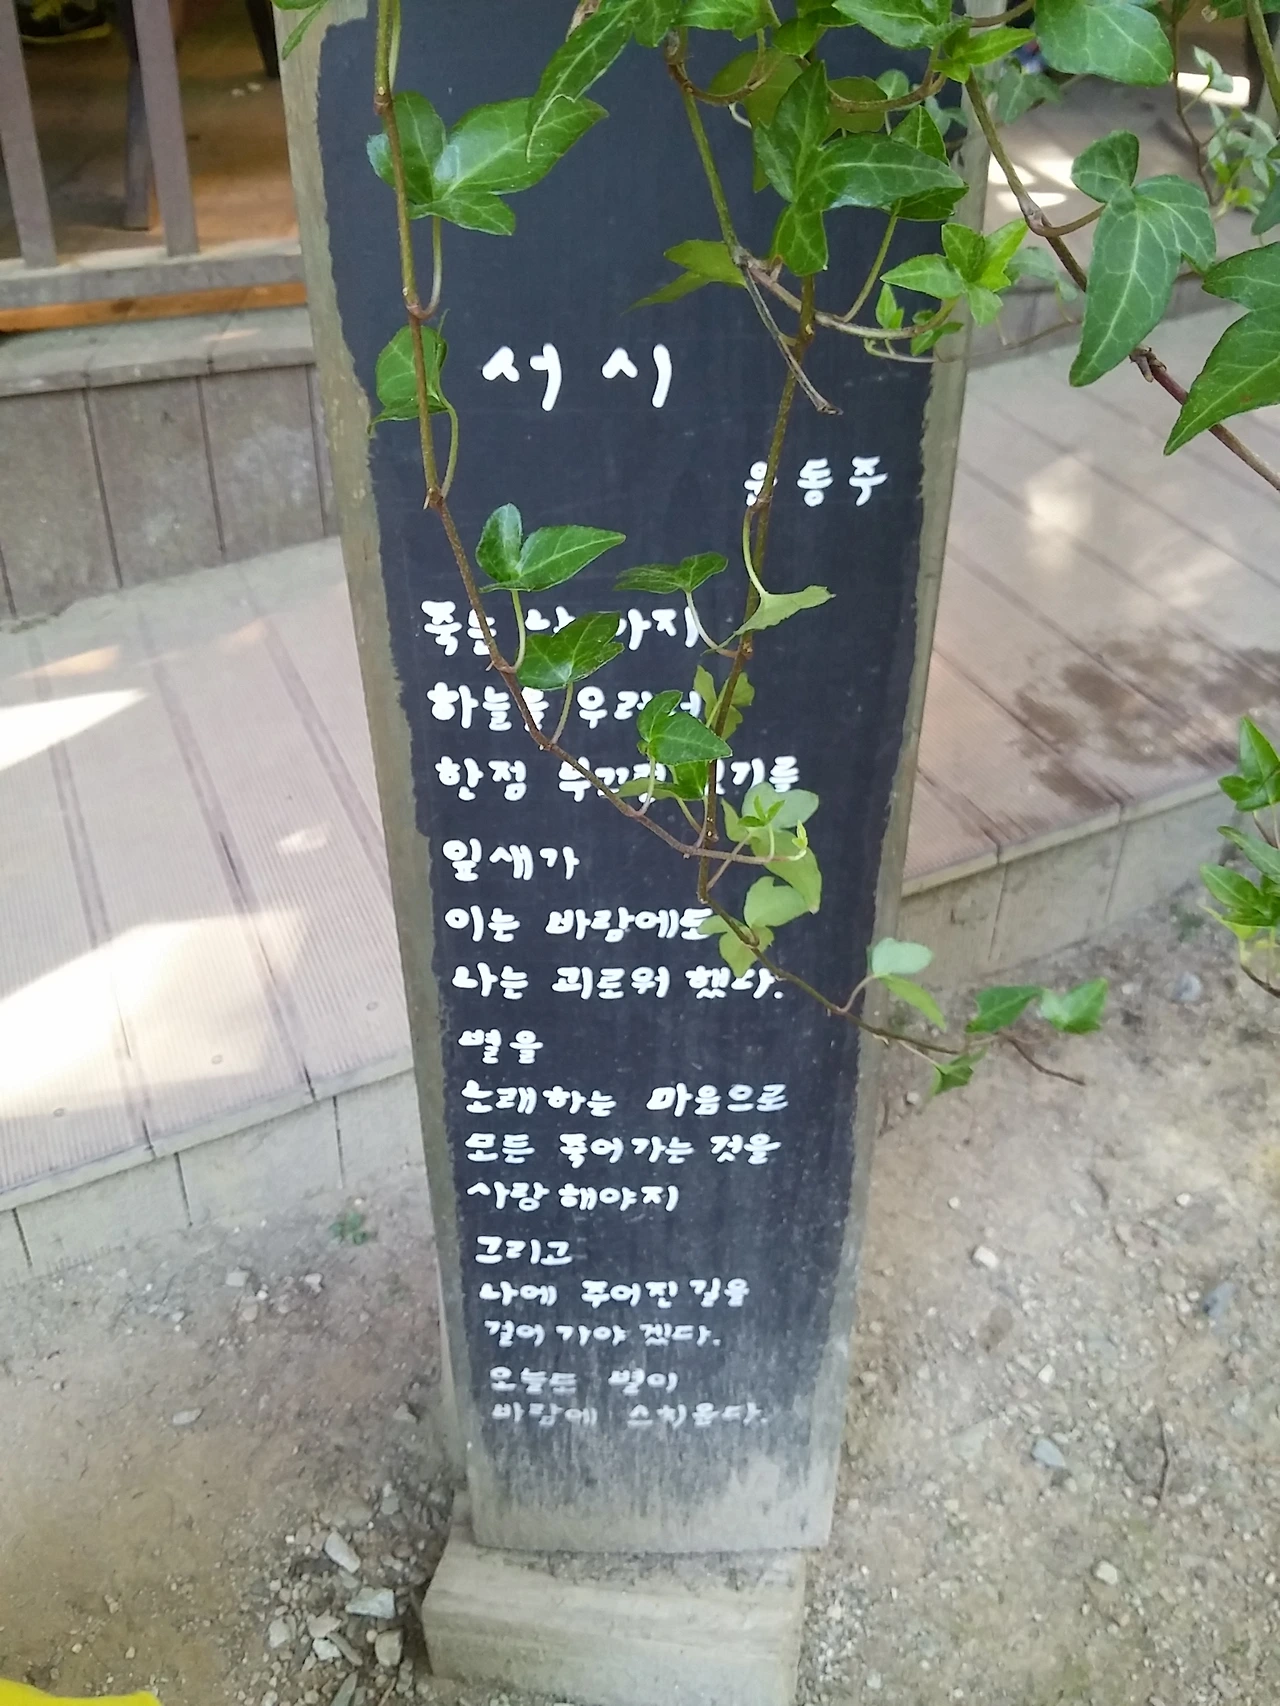 서시
윤동주
죽는
하늘을
한점 부끄럼 없기를
잎새가
이는 바람에도
나는 괴로워 했다.
별을
노래하는 마음으로
모든 죽어가는 것을
사랑해야지
그리고
나에 주어진 길을
걸어 가야 겠다.
오늘도 별이
바람에 스치운다.